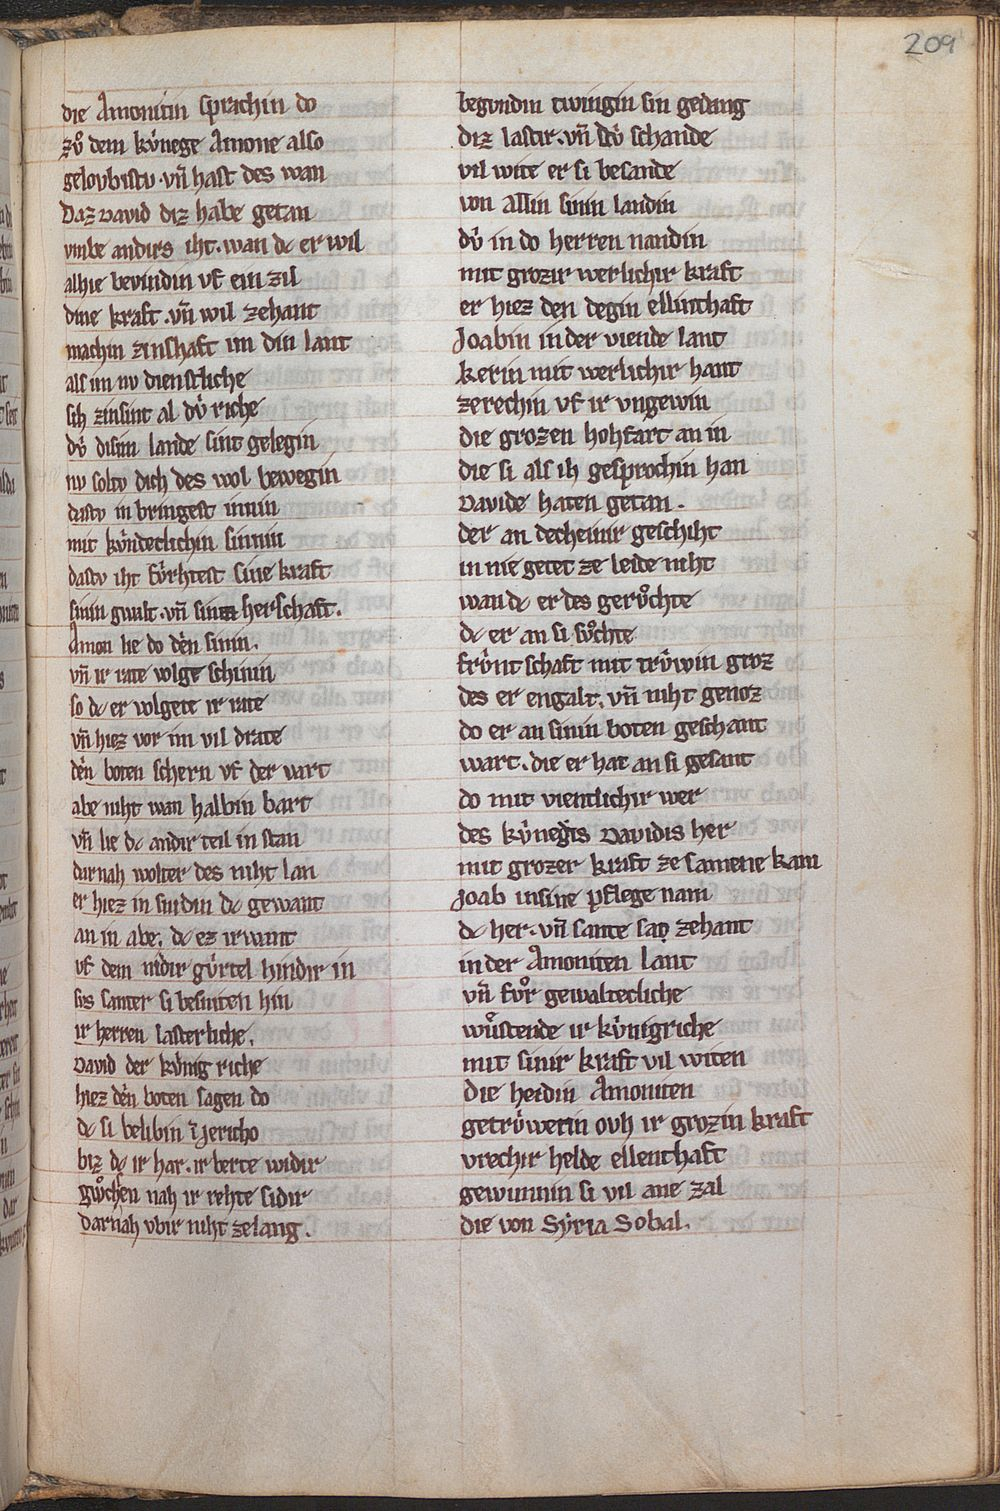 209
die Amonitin sprachin do
zů dem kúnege Amone also
geloubistu · vn̄ hast des wan
Daz David diz habe getan
vmbe andirs iht · wan dc er wil
alhie bevindin vf ein zil
dine kraft · vn̄ wil zehant
machin zinshaft im din lant
als im nv dienstliche
sih zinsint al dú riche
dú disim lande sint gelegin
nv soltv dich des wol bewegin
dastv in bringest innin
mit kúndeclichin sinnin
dastv iht fúrhtest sine kraft
sinin gwalt · vn̄ sine herschaft .
Amon lie do dén sinin .
vn̄ ir rate volge schinin
so dc er volgete ir rate
vn̄ hiez vor im vil drate
dén boten schern vf der vart
abe niht wan halbin bart
vn̄ lie dc andir teil in stan
dar nah wolter des niht lan
er hiez in snidin dc gewant
an in abe . dc ez irwant
vf dem nidir gúrtel hindir in
sus santer si besniten hin
ir herren lasterliche .
David der kúnig riche
hiez dén boten sagen do
dc si belibin ī Jericho
biz dc ir har · ir berte widir
gwͦchsen nah ir rehte sidir
darnah vbir niht zelang .
begvndin twingin sin gedang
diz lastir · vn̄ dú schande
vil wite er si besande
von allin sinin landin
dú in do herren nandin
mit grozir werlichir kraft
er hiez den degin ellinthaft
Joabin in der viende lant
kerin mit werlichir hant
zerechin vf ir vngewin
die grozen hohfart an in
die si als ih gesprochin han
Davide haten getan .
der an decheinir geschiht
in nie getet ze leide niht
wan dc er des gerůchte
dc er an si sůchte
frúntschaft mit trúwin groz
des er engalt . vn̄ niht genoz
do er an sinin boten geschant
wart . die er hat an si gesant
do mit vientlichir wer
des kúnegis Davidis her
mit grozer kraft ze samene kam
Joab in sine pflege nam
dc her · vn̄ sante san zehant
in der Amoniten lant
vn̄ fůr gewaltecliche
wůstende ir kúnigriche
mit sinir kraft vil witen
die heidin Amoniten
getrúwetin ovh ir grozin kraft
vrechir helde ellenthaft
gewunnin si vil ane zal
die von Sẏria Sobal .